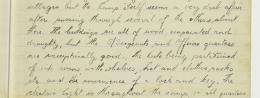 villages but the Camp itself seems a very dull affair
after passing through several of the others about
here. The buildings are all of wood unpainted and
draughty, but the Sergeants and Officers quarters
are exceptionally good. The huts being partitioned
off into rooms with shelves, hat and clothes racks,
etc and the convenience of a lock and key. The
electric light is throughout the camp in all quarters